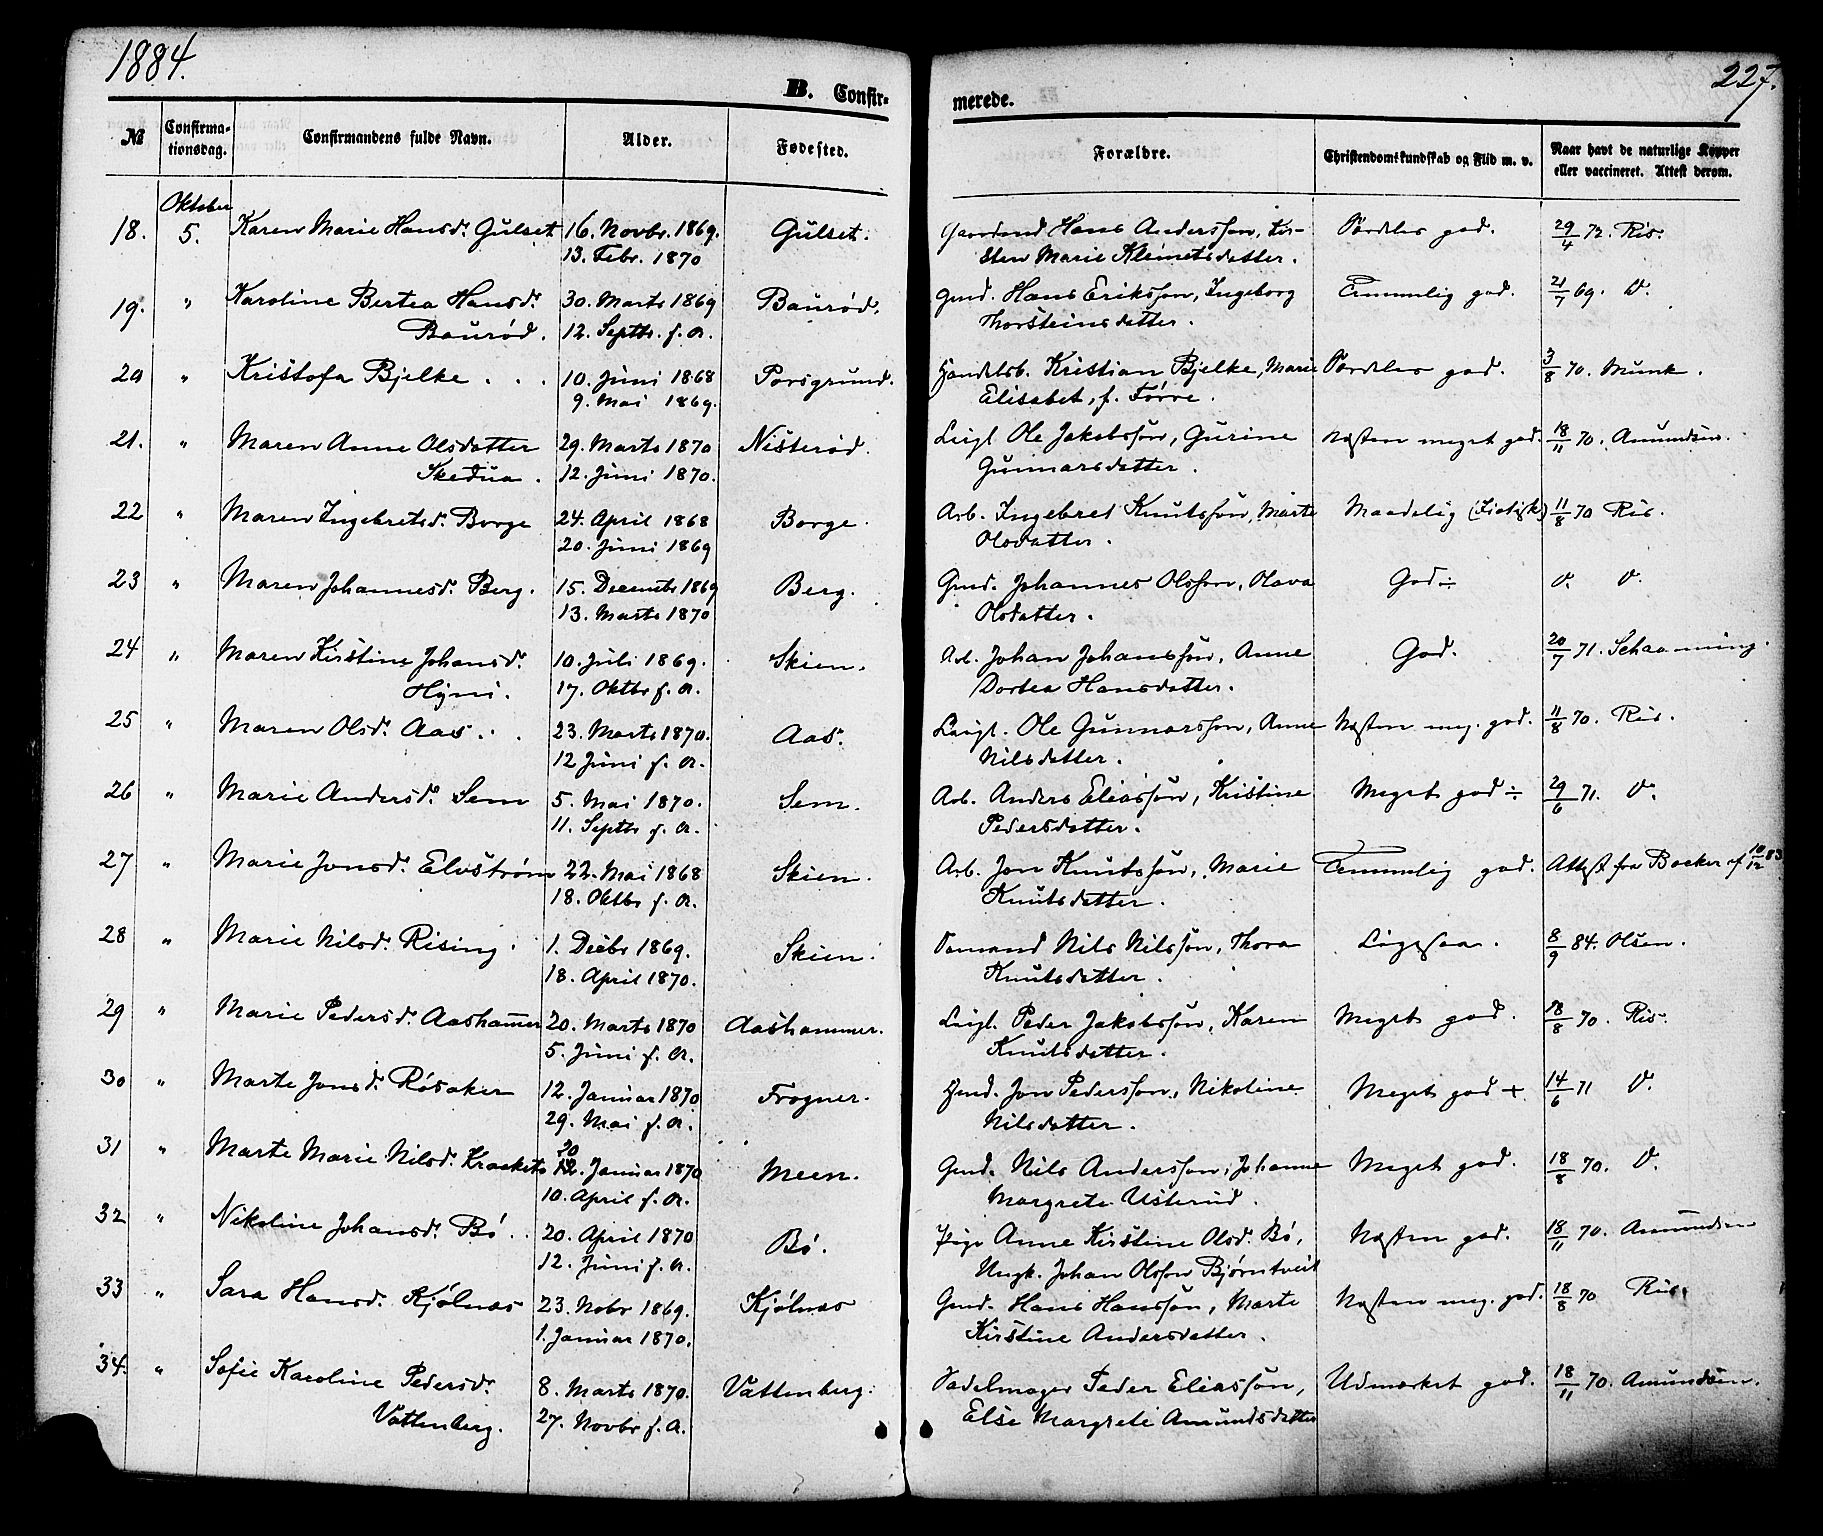 1884.
227.
B. Confir-
merede.
№
Confirma-
tionsdag.
Confirmandens fulde Navn.
Alder.
Fødested.
Forældre.
Christendomskundskab og Flid m. v.
Naar havt de naturlige Kopper
eller vaccineret. Attest derom.
Oktober
18. 5. Karen Marie Hansd. Gulset 16. Novbr. 1869. Gulset. Hans Anderssøn, Kir- Særdeles god. 29/4 72. Ris.
13. Febr. 1870 sten Marie Kleimetsdatter.
19. " Karoline Bertea Hansd. 30. Marts 1869 Baurød. Gmd. Hans Erikssøn, Ingeborg Temmelig god. 21/7 69. D.
Baurød. 12. Septbr. s. A. Thorsteinsdatter.
20 " Kristofa Bjelke . . . 10. Juni 1868 Porsgrund. Handelsb. Kristian Bjelke, Marie Særdeles god. 3/8 70. Munk.
9. Mai 1869. Elisabet, f. Førre.
21. " Maren Anne Olsdatter 29. Marts 1870 Nisterød. Leigl. Ole Jakobssøn, Gurine Næsten meget god. 18/11 70. Amundsen.
Skedua. 12. Juni 1870. Gunnarsdatter.
22 " Maren Ingebretsd. Borge 24. April 1868 Borge. Arb. Ingebret Knutssøn, Marte Maadelig 11/8 70 Ris.
20. Juni 1869 Olsdatter.
23 " Maren Johannesd. Berg. 15. Decembr 1869 Berg. Gmd. Johannes Olssøn, Olava God ÷ D. D.
13. Marts 1870 Olsdatter.
24 " Maren Kirstine Johansd. 10. Juli 1869. Skien. Arb. Johan Johanssøn, Anne God. 20/7 71. Schaanning.
Hyni. 17. Oktbr s. A. Dortea Hansdatter.
25 " Maren Olsd. Aas . . 23. Marts 1870. Aas. Leigl. Ole Gunnarssøn, Anne Næsten meg. god. 11/8 70. Ris.
12 Juni s. A. Nilsdatter.
26 " Marie Andersd. Sem 5. Mai 1870. Sem. Arb. Anders Eliassøn, Kristine Meget god ÷ 29/6 71. D.
11. Septbr s. A. Pedersdatter.
27 " Marie Jonsd. Elvstrøm 22. Mai 1868 Skien. Arb. Jon Knutssøn, Marie Temmelig god. Attest fra Backer af 10/12 83
18. Oktbr s. A. Knutsdatter.
28 " Marie Nilsd. Rising. 1. Decbr 1869. Skien. Sømand Nils Nilssøn, Thora Ligesaa. 8/9 84. Olsen.
18. April 1870. Knutsdatter.
29 " Marie Pedersd. Aashammer 20. Marts 1870 Aashammer. Leigl. Peder Jakobssøn, Karen Meget god. 18/8 70. Ris.
5. Juni s. A. Knutsdatter.
30 " Marte Jonsd. Røsaker 12. Januar 1870 Frogner. Gmd. Jon Pederssøn, Nikoline Meget god + 14/6 71 D.
29. Mai s. A. Nilsdatter.
20
31 " Marte Marie Nilsd. 12. Januar 1870 Meen. Gmd. Nils Anderssøn, Johanne Meget god. 18/8 70. D.
10. April s. A. Margrete Usterud.
32 " Nikoline Johansd. Bö . . 20. April 1870 Bö. Pige Anne Kirstine Olsd. Bö, Næsten god. 18/11 70. Amundsen
12. Juni s. A. Ungk. Johan Olssøn Bjørntveit
33 " Sara Hansd. Kjölnæs 23. Nobr 1869. Kjölnæs Gmd. Hans Hanssøn, Marte Næsten meg. god. 18/8 70 Ris.
1. Januar 1870. Kirstine Andersdatter.
34. " Sofie Karoline Pedersd. 8. Marts 1870. Vattenberg. Sadelmager Peder Eliassøn, Udmærket god. 18/11 70. Amundsen.
Vattenberg. 27. Novbr s. A. Else Margrete Amundsdatter